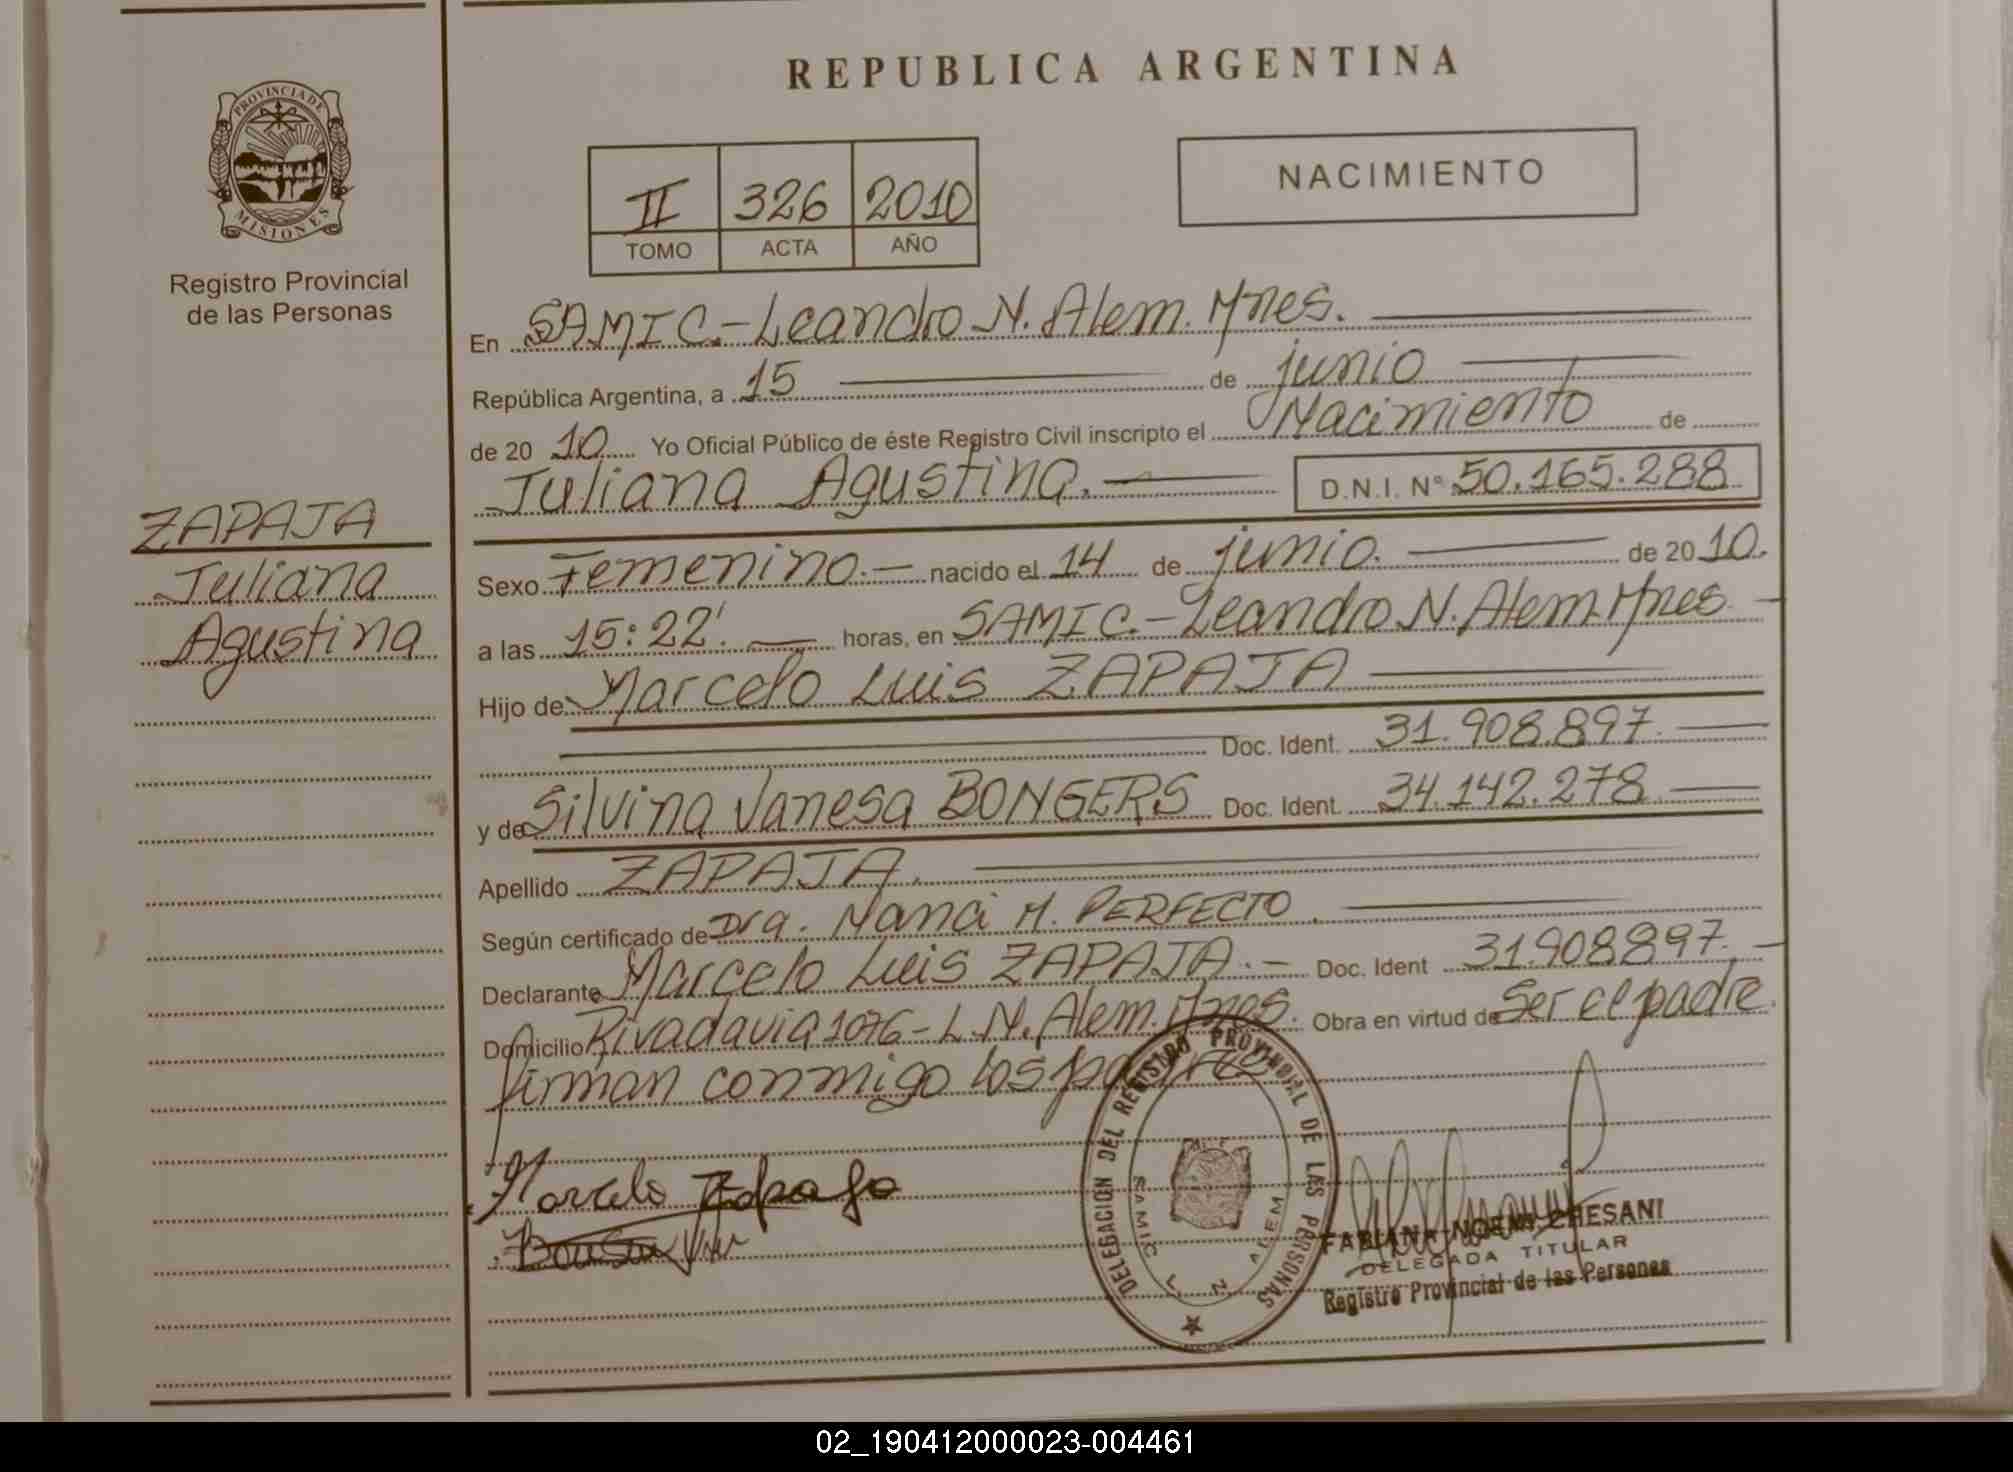 REPUBLICA ARGENTINA
PROVINCIA DE
MISIONES
Registro Provincial
de las Personas
II 326 2010
TOMO ACTA AÑO
NACIMIENTO
ZAPAJA
Juliana
Agustina
En SAMIC.-Leandro N. Alem. Mnes.
República Argentina, a 15 de junio
de 20 10 Yo Oficial Público de éste Registro Civil inscripto el Nacimiento de
Juliana Agustina. D.N.I. Nº 50.165.288
Sexo Femenino. nacido el 14 de junio. de 20 10.
a las 15:22'. horas, en SAMIC.-Leandro N. Alem. Mnes
Hijo de Marcelo Luis ZAPAJA
Doc. Ident. 31.908.897.
y de Silvina Vanesa BONGERS Doc. Ident. 34.142.278
Apellido ZAPAJA.
Según certificado de Dra. Nanci M. PERFECTO.
Declarante Marcelo Luis ZAPAJA.- Doc. Ident 31.908.897.
Domicilio Rivadavia 1076-L.N. Alem. Mnes. Obra en virtud de Ser el padre.
firman conmigo los padres
Marcelo Zapaja
DELEGACION DEL REGISTRO PROVINCIAL DE LAS PERSONAS
SAMIC L N ALEM
FABIANA NOEMI CHESANI
DELEGADA TITULAR
Registro Provincial de las Personas
02_190412000023-004461